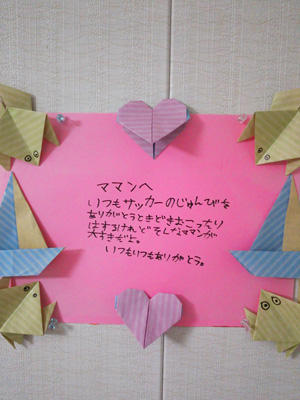 ママンへ
いつもサッカーのじゅんびを
ありがとうときどきおこったり
はするけれどそんなママンが
大すきだよ。
いつもいつもありがとう。